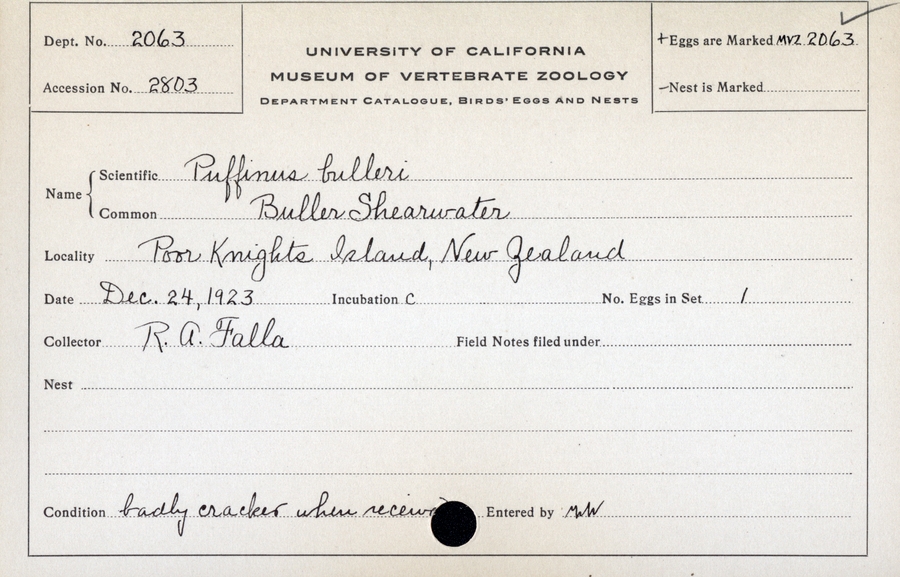 Dept. No. 2063
Accession No. 2803
UNIVERSITY OF CALIFORNIA
MUSEUM OF VERTEBRATE ZOOLOGY
DEPARTMENT CATALOGUE, BIRDS' EGGS AND NESTS
+Eggs are Marked MVZ 2063
-Nest is Marked
Name
Scientific Puffinus bulleri
Common Buller Shearwater
Locality Poor Knights Island, New Zealand
Date Dec. 24, 1923 Incubation C No. Eggs in Set 1
Collector R. A. Falla Field Notes filed under
Nest
Condition badly cracked when Entered by